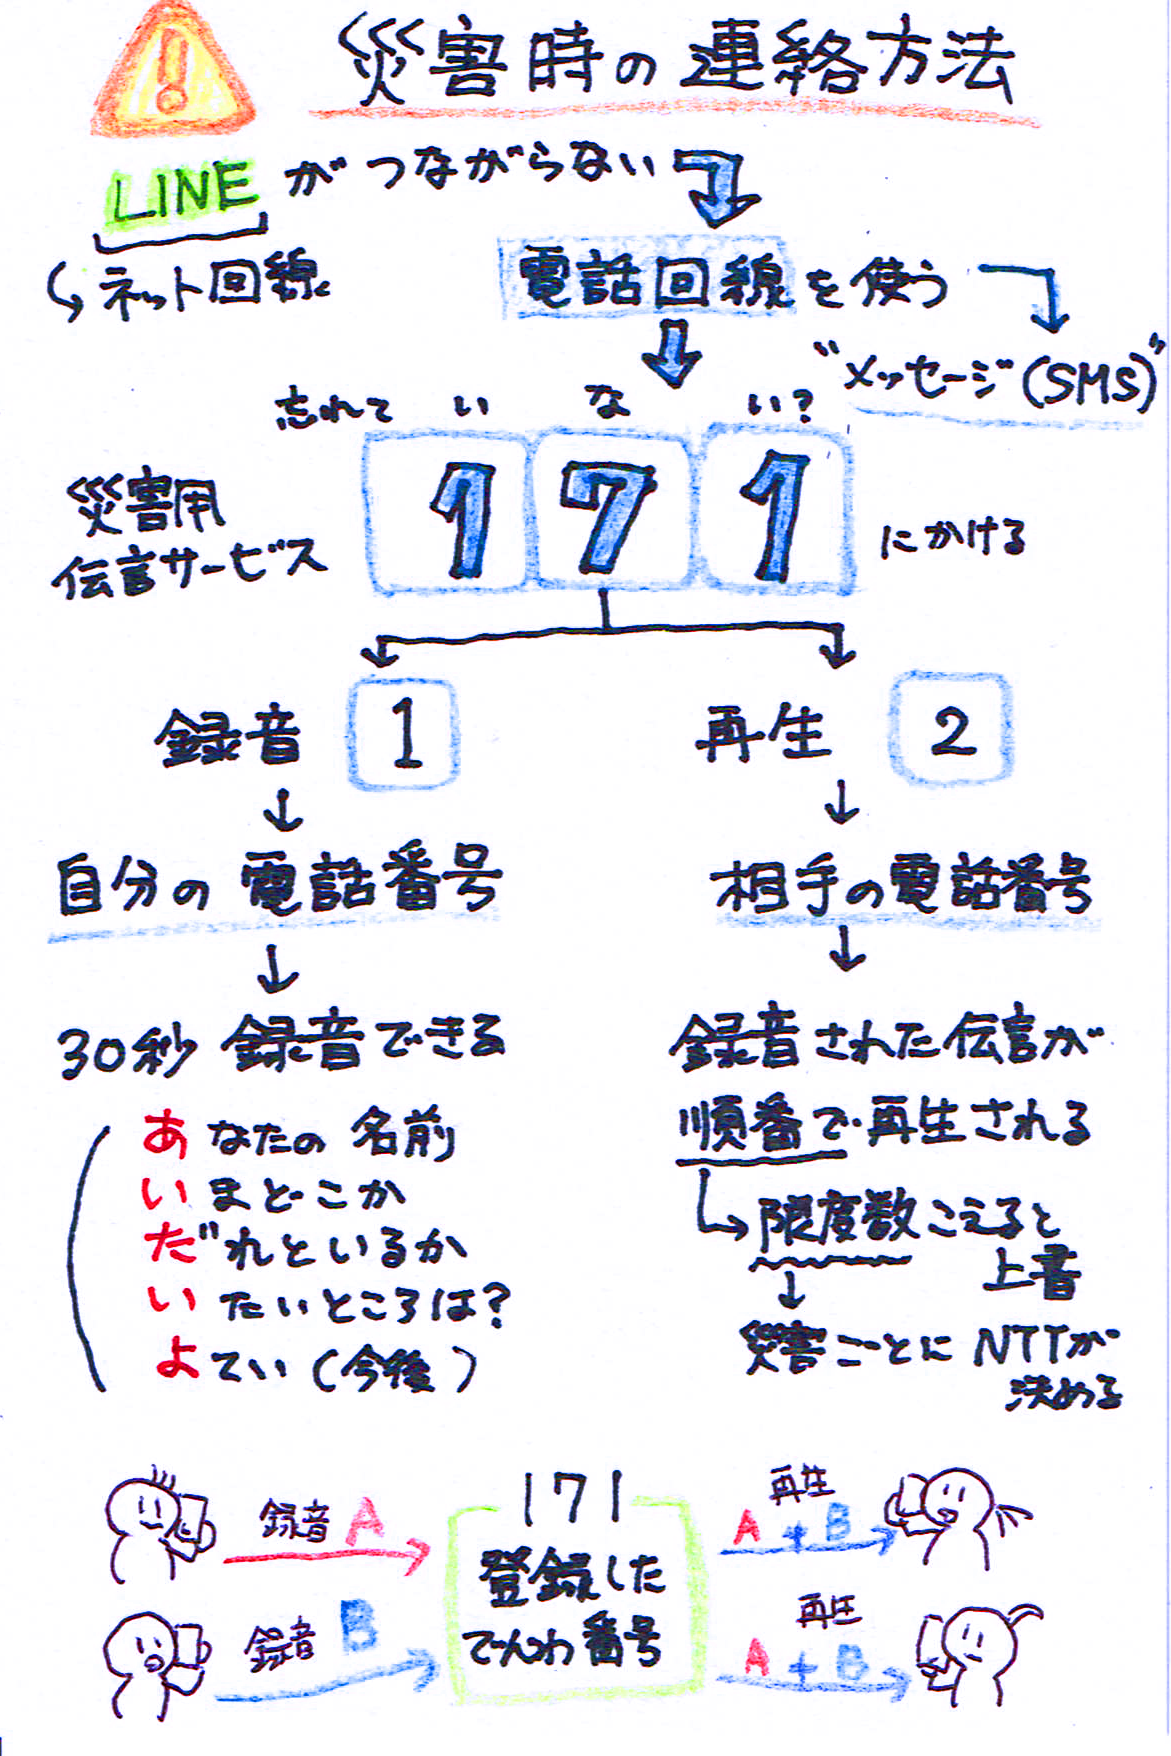 災害時の連絡方法
LINEがつながらない
ネット回線
電話回線を使う
"メッセージ(SMS)"
忘れて い な い?
災害用
伝言サービス
171
にかける
録音 1
再生 2
自分の電話番号
相手の電話番号
30秒 録音できる
あなたの名前
いまどこか
だれといるか
いたいところは?
よてい(今後)
録音された伝言が
順番で再生される
限度数こえると
上書
災害ごとにNTTが
決める
録音 A
録音 B
171
登録した
でんわ番号
再生
A + B
再生
A + B